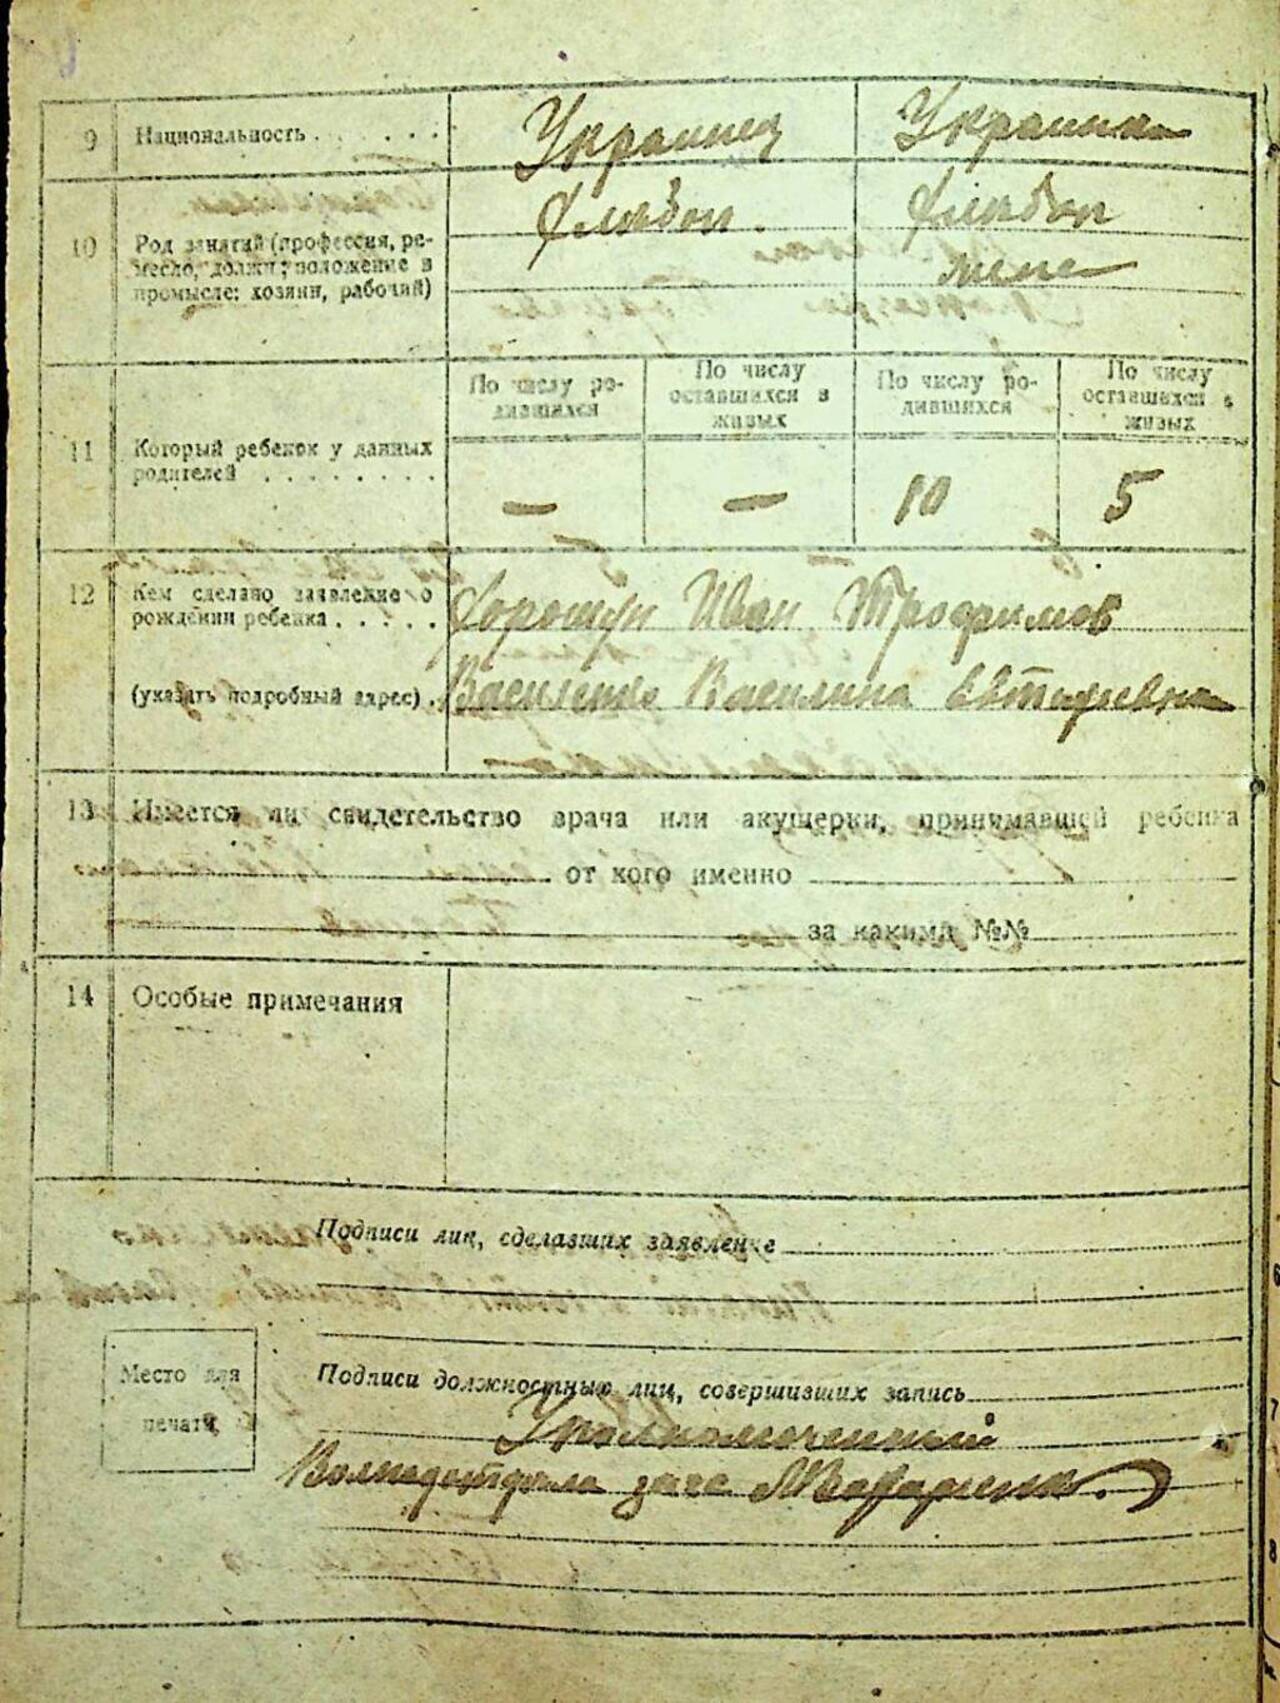 9 Национальность . . . . . . Украинец Украинка
10 Род занятий (профессия, ре-
месло, должн; положение в
промысле: хозяин, рабочий)
Хлибоп. Хлибоп
11 Который ребенок у данных
родителей . . . . . . . .
По числу ро-
дившихся
По числу
оставшихся в
живых
По числу ро-
дившихся
По числу
оставшихся в
живых
— — 10 5
12 Кем сделано заявление о
рождении ребенка . . . . .
(указать подробный адрес) .
Хорошун Иван Трофимов
Василенко Василина
13 Имеется ли свидетельство врача или акушерки, принимавшей ребенка
от кого именно
за каким №№
14 Особые примечания
Подписи лиц, сделавших заявление
Место для
печати
Подписи должностных лиц, совершивших запись
Уполномоченный
загс